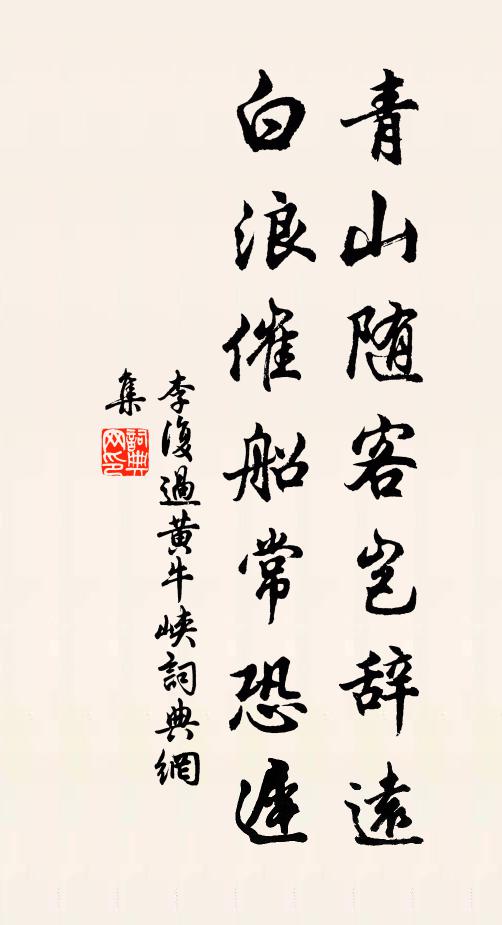 青山随客岂辞遠
白浪催船常恐遲
李復過黄牛峡詞典網
集
詞典
网印